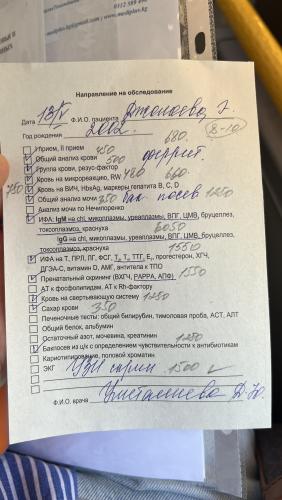 0312 889
mediplus.kg@gmail.com
www.mediplus.kg
Направление на обследование
Дата 13/V Ф.И.О. пациента
Год рождения 2002. 680. 8-10
I прием, II прием 450
Общий анализ крови 500 ферритин
Группа крови, резус-фактор
Кровь на микрореакцию, RW 480 660
750 Кровь на ВИЧ, HbsAg, маркеры гепатита В, С, D
Общий анализ мочи 350 бак посев 1250
Анализ мочи по Нечипоренко
ИФА: IgM на chl, микоплазмы, уреаплазмы, ВПГ, ЦМВ, бруцеллез,
токсоплазмоз, краснуха 6050
IgG на chl, микоплазмы, уреаплазмы, ВПГ, ЦМВ, бруцеллез,
токсоплазмоз, краснуха 1550
ИФА на Т, ПРЛ, ЛГ, ФСГ, Т₃, Т₄, ТТГ, Е₂, прогестерон, ХГЧ,
ДГЭА-С, витамин D, АМГ, антитела к ТПО
Пренатальный скрининг (ВХГЧ, РАРРА, АПФ) 1550
АТ к фосфолипидам, АТ к Rh-фактору
Кровь на свертывающую систему 1250
Сахар крови 350
Печеночные тесты: общий билирубин, тимоловая проба, АСТ, АЛТ
Общий белок, альбумин
Остаточный азот, мочевина, креатинин 1250
Бакпосев из ц/к с определением чувствительности к антибиотикам
Кариотипирование, половой хроматин
ЭКГ УЗИ 1500 ✓
Ф.И.О. врача